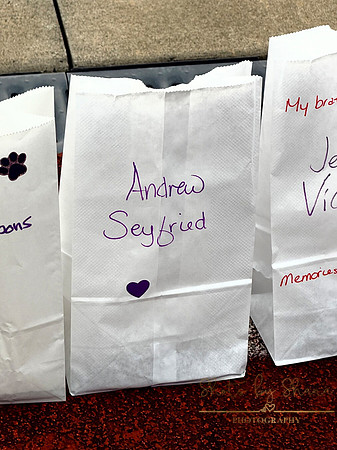 oons
Andrew
Seyfried
My bra
Je
Vic
Memories
PHOTOGRAPHY